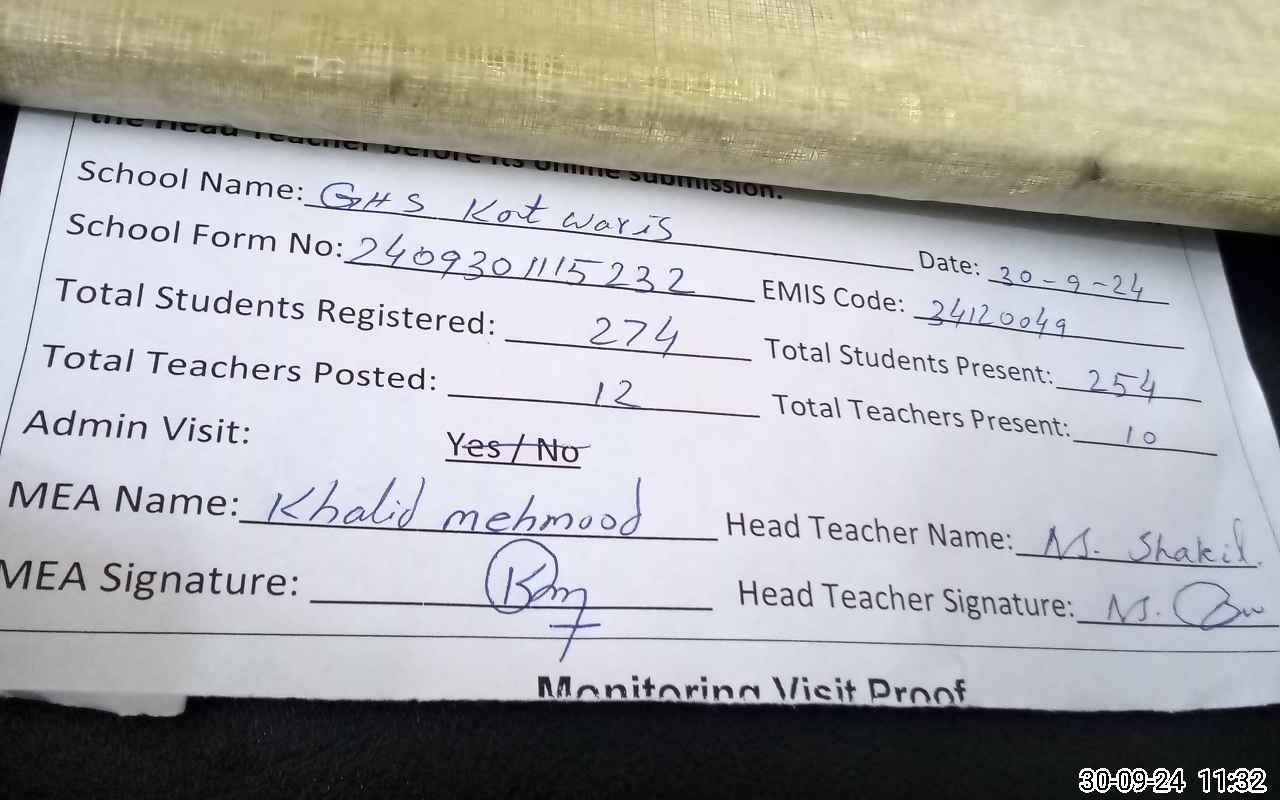 the Head Teacher before its online submission.
School Name: GHS Kot waris
Date: 30-9-24
School Form No: 2409301115232
EMIS Code: 34120049
Total Students Registered: 274
Total Students Present: 254
Total Teachers Posted: 12
Total Teachers Present: 10
Admin Visit: Yes / No
MEA Name: Khalid mehmood
Head Teacher Name: M. Shakil
MEA Signature:
Head Teacher Signature: M.
Monitoring Visit Proof
30-09-24 11:32